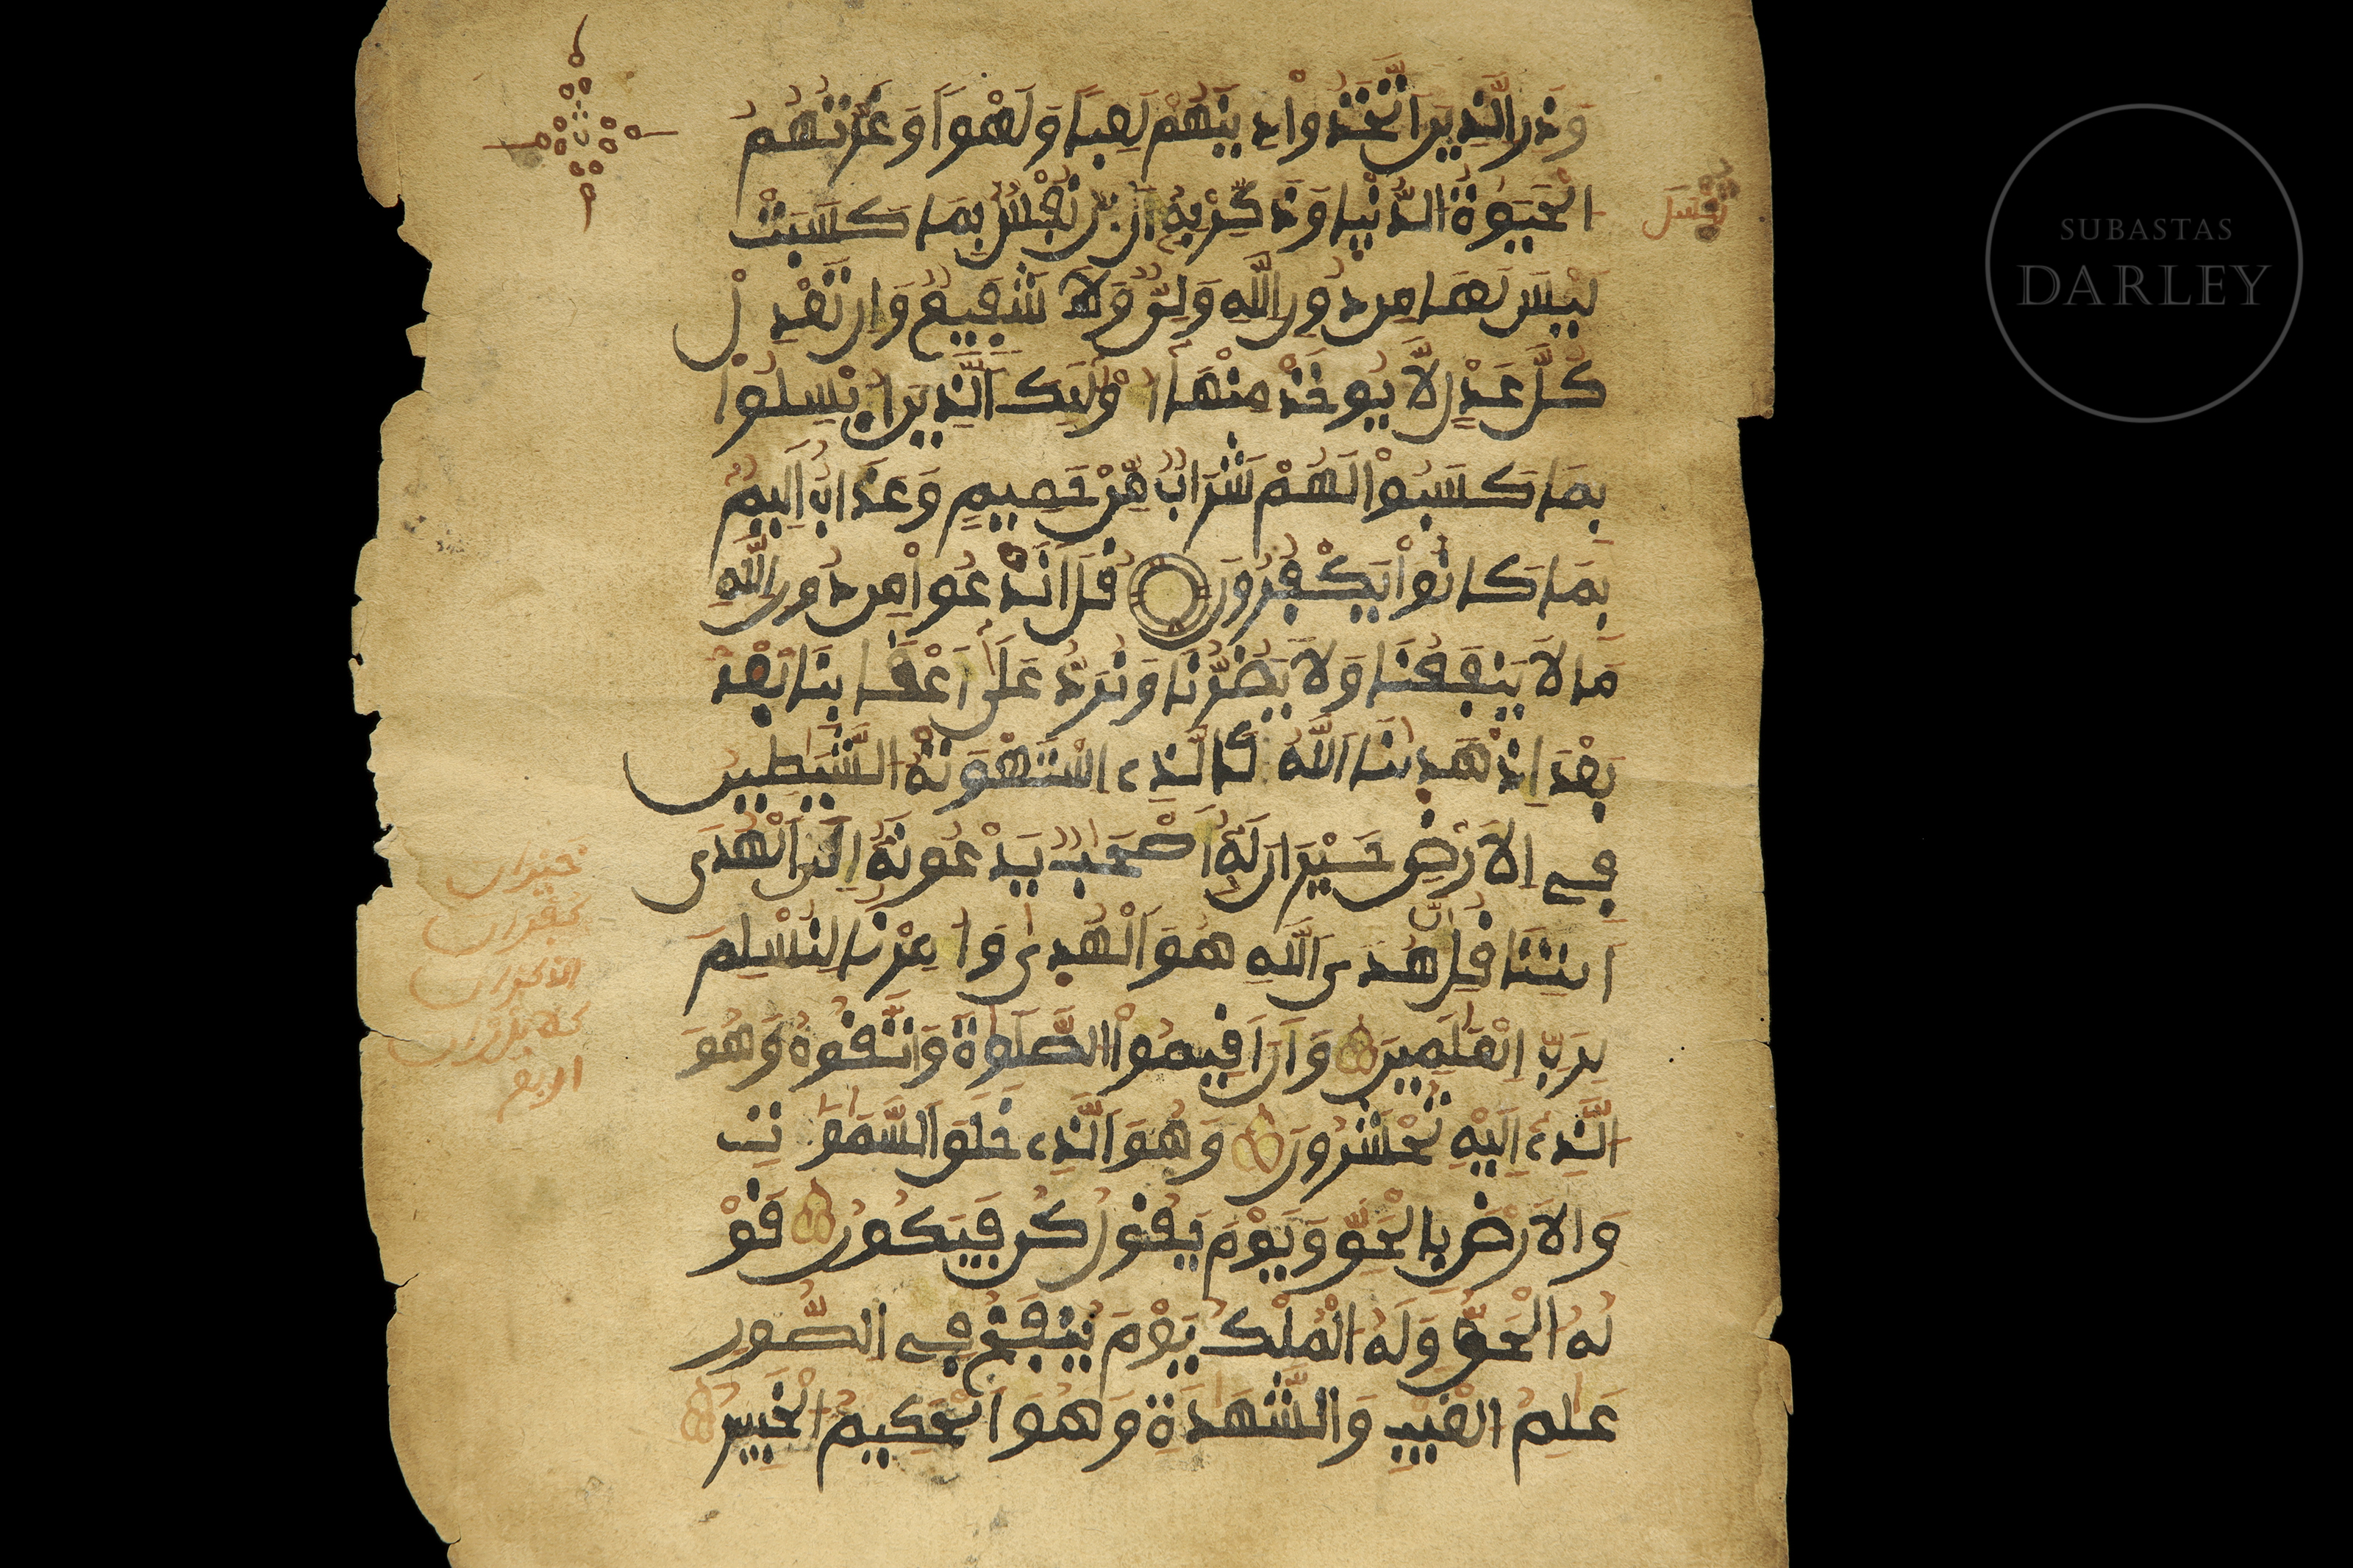 وَذَرِ الَّذِينَ اتَّخَذُواْ دِينَهُمْ لَعِباً وَلَهْواً وَغَرَّتْهُمُ
الْحَيَوٰةُ الدُّنْيَا وَذَكِّرْ بِهِ أَن نَفْسٌ بِمَا كَسَبَتْ
تُبْسَلَ
لَيْسَ لَهَا مِن دُونِ اللَّهِ وَلِيٌّ وَلاَ شَفِيعٌ وَإِن تَعْدِلْ
كُلَّ عَدْلٍ لاَّ يُوخَذْ مِنْهَا أُوْلَٰئِكَ الَّذِينَ أُبْسِلُواْ
بِمَا كَسَبُواْ لَهُمْ شَرَابٌ مِّنْ حَمِيمٍ وَعَذَابٌ اَلِيمٌ
بِمَا كَانُواْ يَكْفُرُونَ قُلَ اَنَدْعُواْ مِن دُونِ اللَّهِ
مَا لاَ يَنفَعُنَا وَلاَ يَضُرُّنَا وَنُرَدُّ عَلَىٰ أَعْقَابِنَا بَعْدَ
بَعْدَ إِذْ هَدَيٰنَا اللَّهُ كَالَّذِے اسْتَهْوَتْهُ الشَّيَٰطِينُ
فِے الاَرْضِ حَيْرَانَ لَهُ أَصْحَٰبٌ يَدْعُونَهُ إِلَى الْهُدَى
اَيتِنَا قُلِ انَّ هُدَى اللَّهِ هُوَ الْهُدٜىٰ وَأُمِرْنَا لِنُسْلِمَ
لِرَبِّ الْعَٰلَمِينَ وَأَنَ اَقِيمُواْ الصَّلَوٰةَ وَاتَّقُوهُ وَهُوَ
الَّذِے إِلَيْهِ تُحْشَرُونَ وَهُوَ الَّذِے خَلَقَ السَّمَٰوَٰتِ
وَالاَرْضَ بِالْحَقِّ وَيَوْمَ يَقُولُ كُن فَيَكُونُ قَوْ
لُهُ الْحَقُّ وَلَهُ الْمُلْكُ يَوْمَ يُنفَخُ فِے الصُّورِ
عَٰلِمُ الْغَيْبِ وَالشَّهَٰدَةِ وَهُوَ الْحَكِيمُ الْخَبِيرُ
SUBASTAS
DARLEY